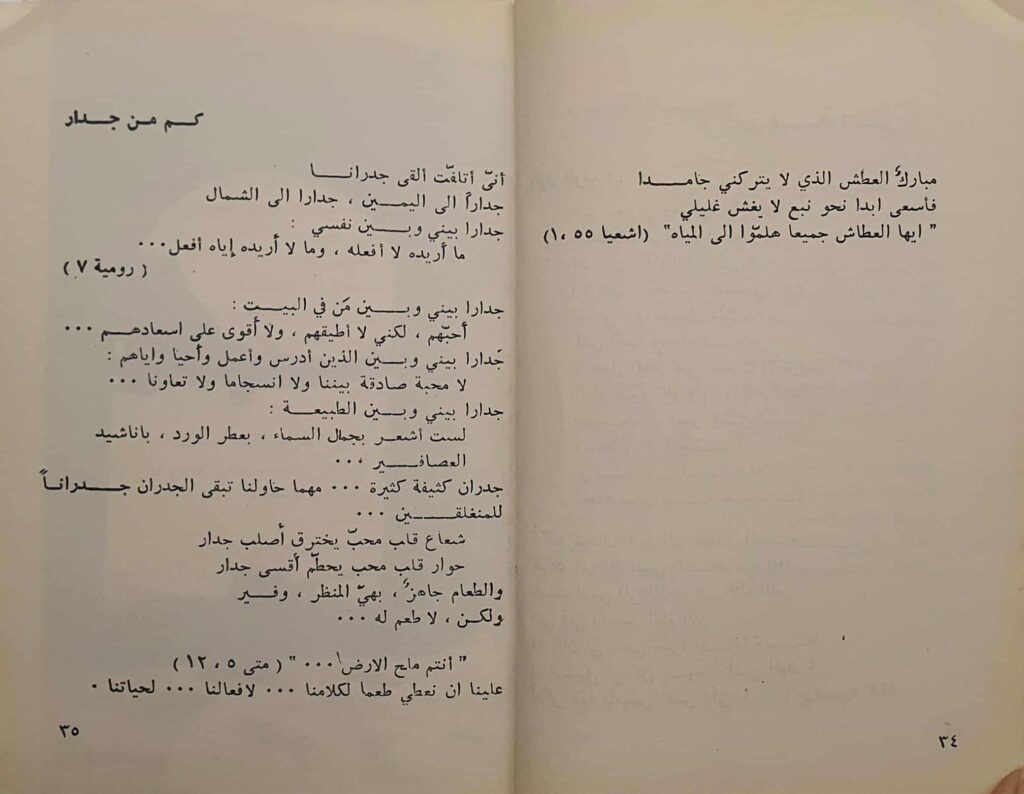 مباركٌ العطش الذي لا يتركني جامـــدا
فأسعى ابدا نحو نبع لا يغش غليلي
" ايها العطاش جميعا هلمّوا الى المياه" (اشعيا ٥٥ ،١)
٣٤
كــم مـن جــدار
أنىّ أتلفّت ألقى جدرانــــا
جداراً الى اليمـــين ، جدارا الى الشمال
جدارا بيني وبـــين نفسي :
ما أريده لا أفعله ، وما لا أريده إياه أفعل...
( رومية ٧ )
جدارا بيني وبـــين مَن في البيـــت :
أحبّهم ، لكني لا أطيقهم ، ولا أقوى على اسعادهـــم ...
جَدارا بيني وبـــين الذين أدرس وأعمل وأحيا واياهم :
لا محبة صادقة بيننا ولا انسجاما ولا تعاونا ...
جدارا بيني وبـــين الطبيعـــة :
لست أشعـر بجمال السماء ، بعطر الورد ، باناشيد
العصافـــير ...
جدران كثيفة كثيرة ... مهما حاولنا تبقى الجدران جـــدراناً
للمنغلقـــــين ...
شعاع قلب محبّ يخترق أصلب جدار
حوار قلب محب يحطّم أقسى جدار
والطعام جاهزٌ ، بهيّ المنظر ، وفـــير
ولكـن ، لا طعم له ...
" أنتم ملح الارض ... " ( متى ٥ ، ١٢ )
علينا ان نعطي طعما لكلامنا ... لافعالنا ... لحياتنا .
٣٥